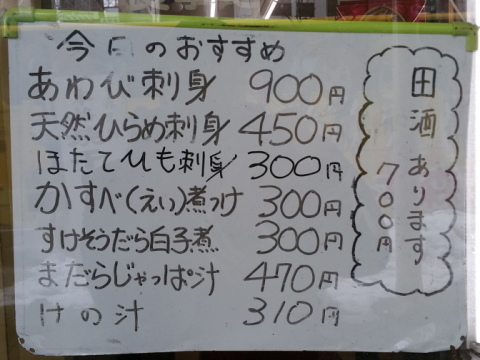 今日のおすすめ
あわび刺身 900円
天然ひらめ刺身 450円
ほたてひも刺身 300円
かすべ(えい)煮つけ 300円
すけそうだら白子煮 300円
まだらじゃっぱ汁 470円
けの汁 310円
田酒あります
700円